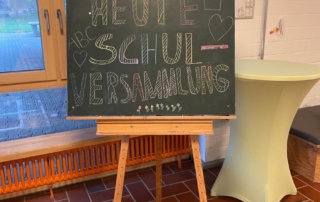 HEUTE
ABC
SCHUL
VERSAMMLUNG